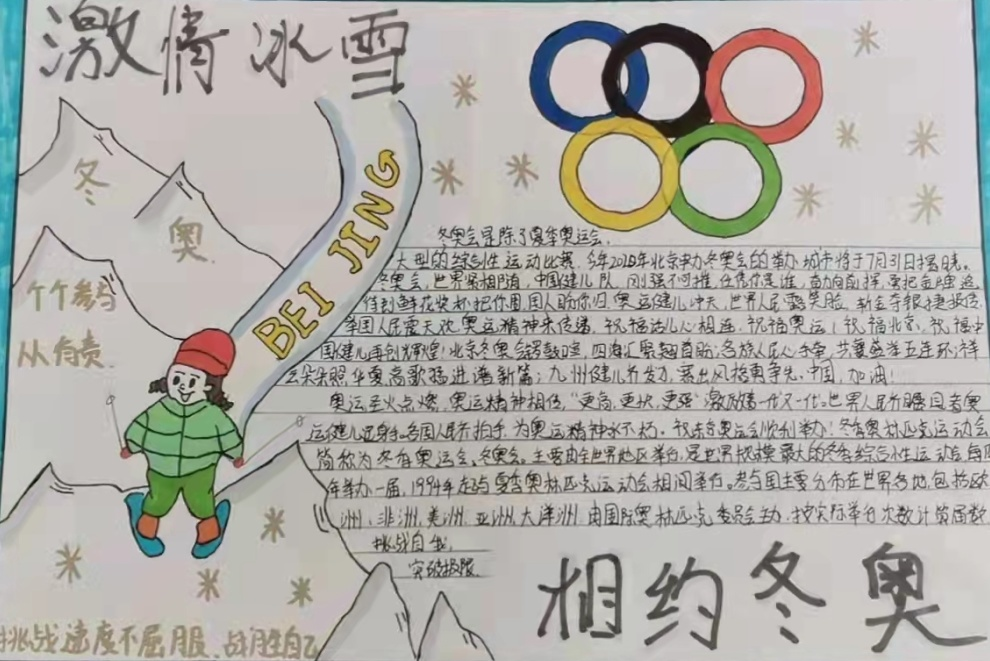 激情冰雪
冬
奥
BEI JING
个个参与
从有责
冬奥会是除了夏季奥运会
大型的综合性运动比赛,今年2015年北京申办冬奥会的举办城市将于7月31日揭晓。
冬奥会,世界紧相随,中国健儿队,刚强不可摧,任凭你是谁,
待到鲜花奖杯把你围国人盼你归 奥运健儿冲天,世界人民露笑脸,斩金夺银捷报传,
举国人民震天欢 奥运精神来传递,祝福奥运!祝福北京,祝福中
国健儿再创辉煌!北京冬奥会锣鼓喧,四海汇聚翘首盼;各族人民人心手牵,共襄盛举五连环;祥
云朵朵照,华夏高歌猛进谱新篇;九州健儿齐发力,赛出风格勇争先。中国,加油!
奥运圣火点燃,奥运精神相传,“更高,更快,更强”激励着一代又一代。世界人民齐瞩目看奥
运健儿显身手。各国人民齐拍手,为奥运精神永不朽。祝冬奥运会顺利举办!冬季奥林匹克运动会
简称为冬季奥运会、冬奥会。主要由全世界地区举行,是世界规模最大的冬季综合性运动会,每四
年举办一届,1994年起与夏季奥林匹克运动会相间举行。参与国主要分布在世界各地,包括欧
洲、非洲、美洲、亚洲、大洋洲,由国际奥林匹克委员会主办,按实际举行次数计算届数
挑战自我,
突破极限。
相约冬奥
挑战速度不屈服、战胜自己